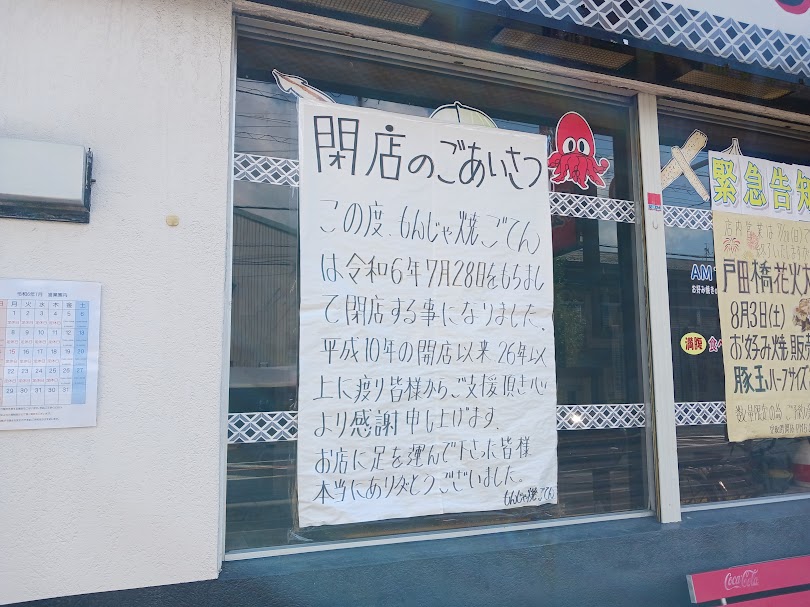 閉店のごあいさつ
この度、もんじゃ焼ごてん
は令和6年7月28日をもちまし
て閉店する事になりました。
平成10年の開店以来26年以
上に渡り皆様からご支援頂き心
より感謝申し上げます。
お店に足を運んで下さった皆様
本当にありがとうございました。
もんじゃ焼ごてん
緊急告知
戸田橋花火大
8月3日(土)
お好み焼販売
豚玉ハーフサイズ
満腹
食べ
AM
お好み焼き
日 月 火 水 木 金 土
1 2 3 4 5 6
8 9 10 11 12 13
15 16 17 18 19 20
22 23 24 25 26 27
29 30 31
Coca-Cola